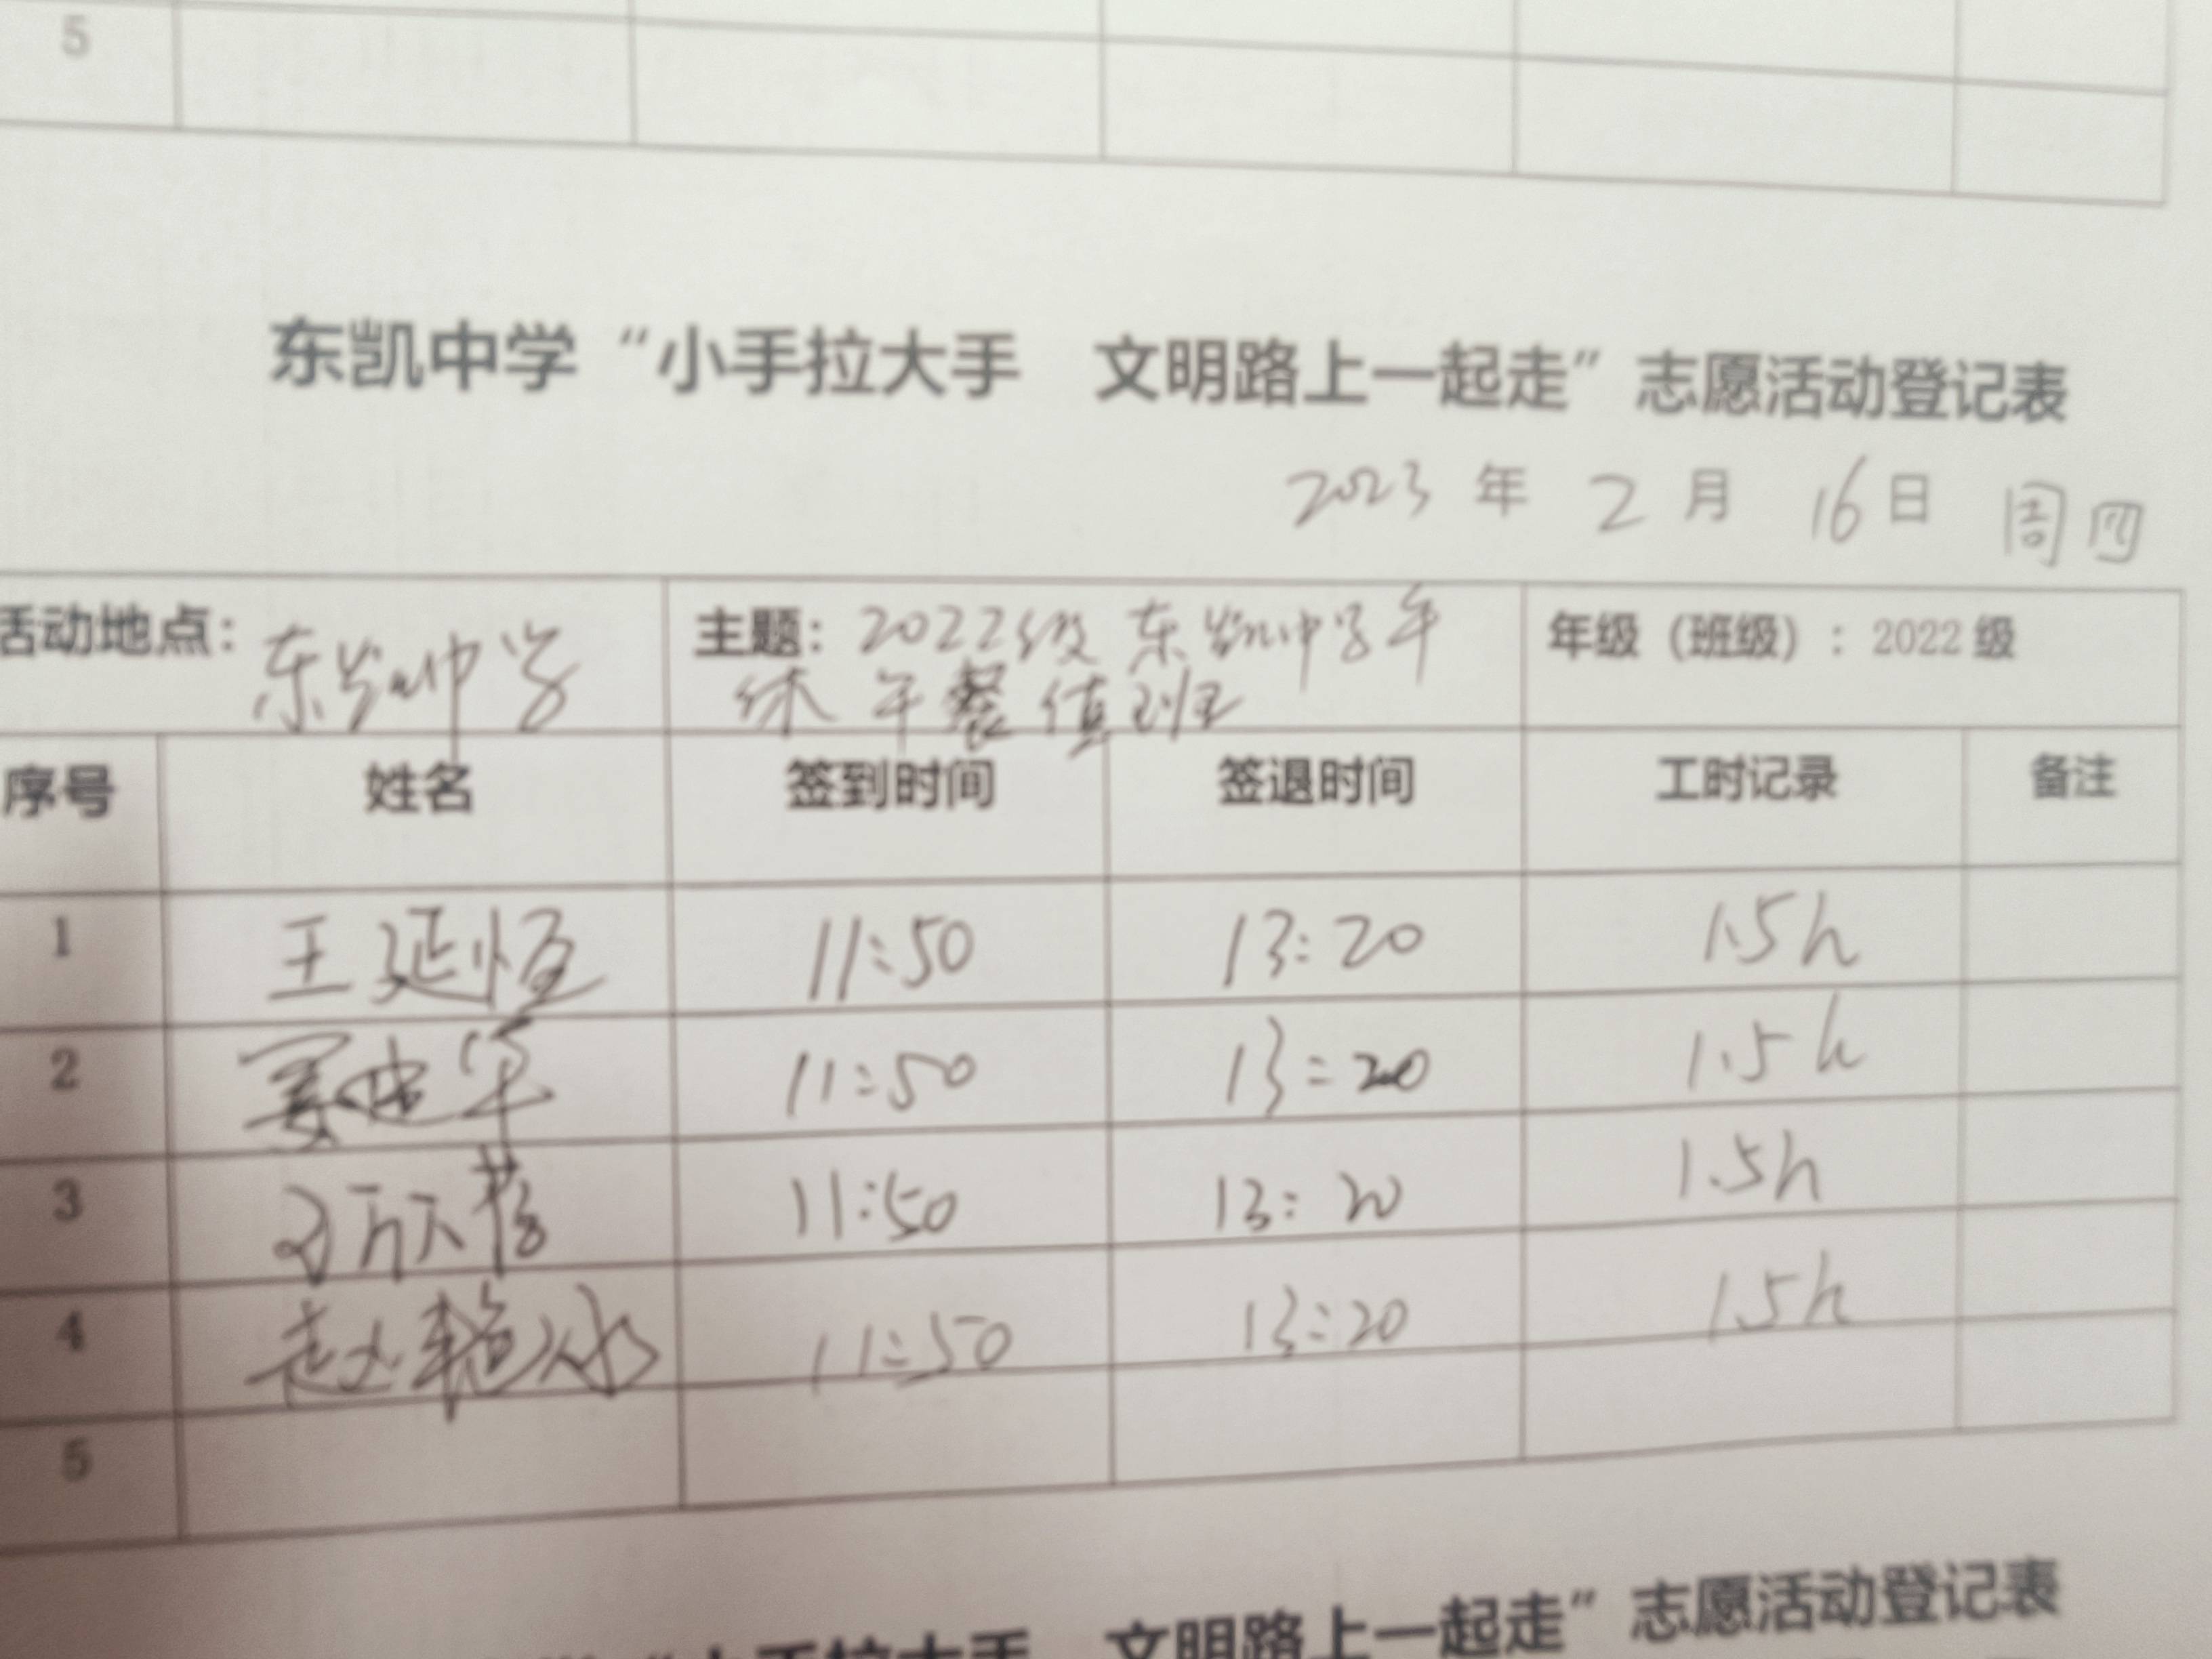 5
东凯中学“小手拉大手 文明路上一起走”志愿活动登记表
2023 年 2 月 16 日 周四
活动地点: 东凯中学 主题: 2022级东凯中学午 年级（班级）: 2022 级
休 午餐 值班
序号 姓名 签到时间 签退时间 工时记录 备注
1 王延恒 11:50 13:20 1.5h
2 11:50 13:20 1.5h
3 11:50 13:20 1.5h
4 赵艳冰 11:50 13:20 1.5h
5
“小手拉大手 文明路上一起走”志愿活动登记表